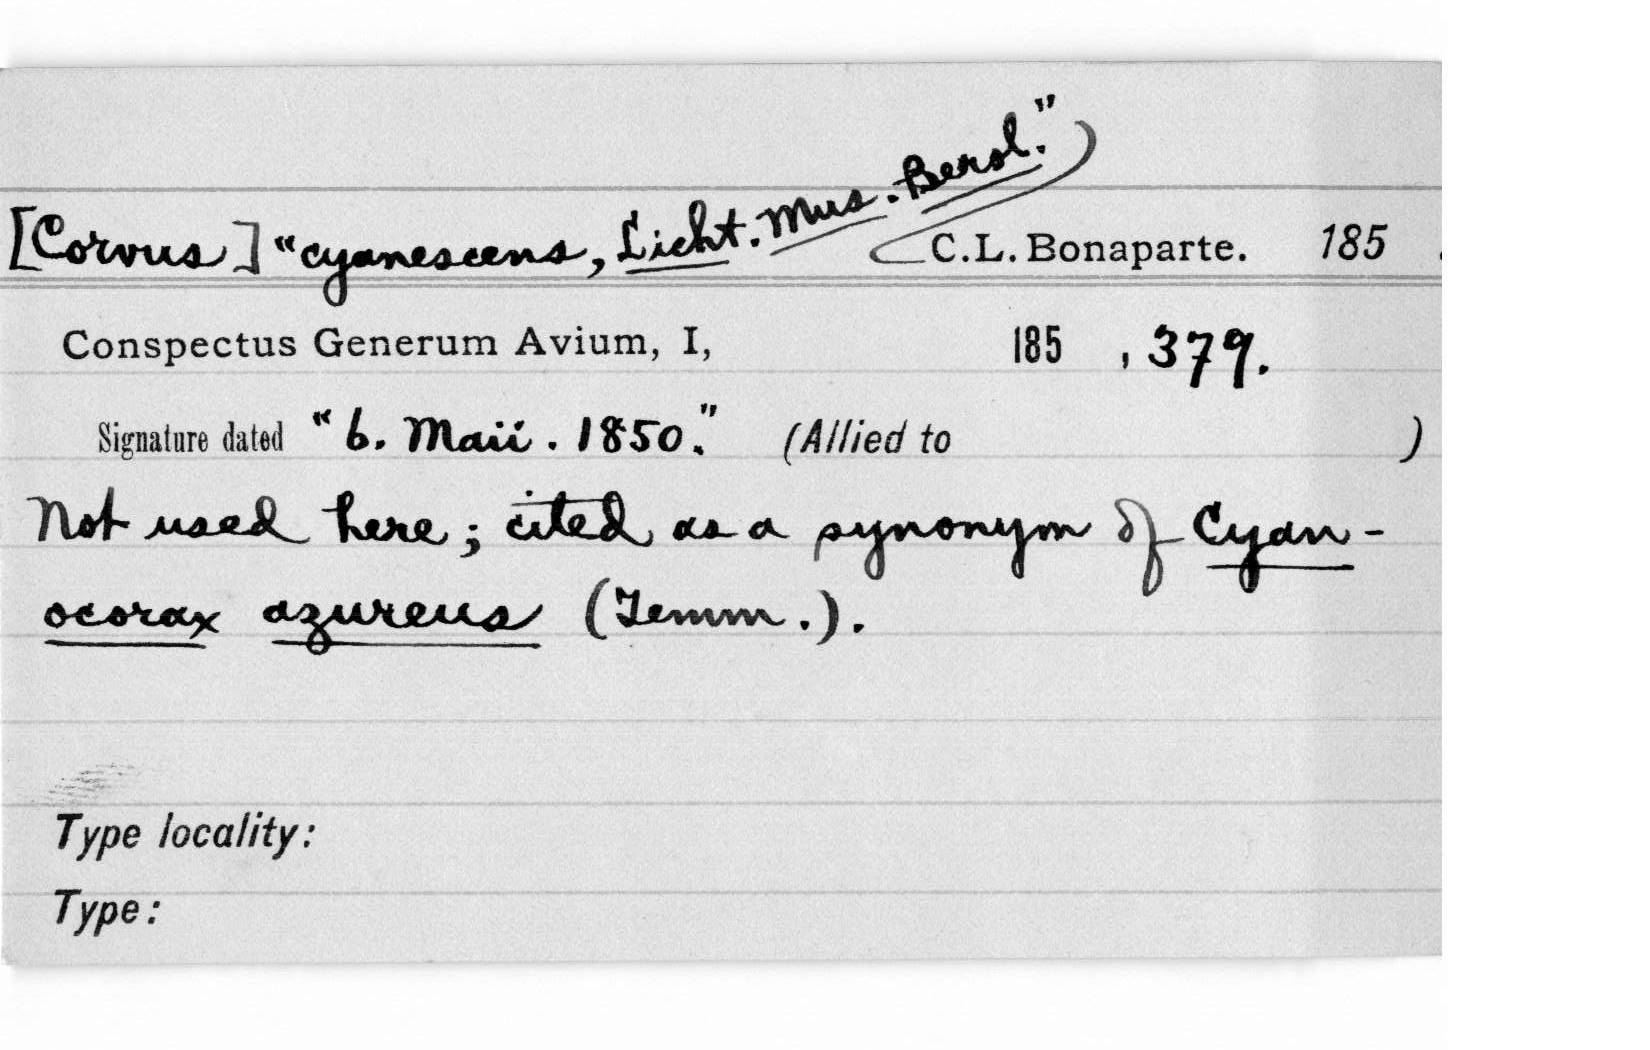 [Corvus] "cyanescens, Licht. Mus. Berol.") C.L. Bonaparte. 185 .
Conspectus Generum Avium, I, 185 , 379.
Signature dated "6. Maii. 1850." (Allied to )
Not used here; cited as a synonym of Cyan-
ocorax azureus (Temm.).
Type locality:
Type: